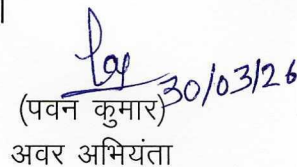 30/03/26
(पवन कुमार)
अवर अभियंता